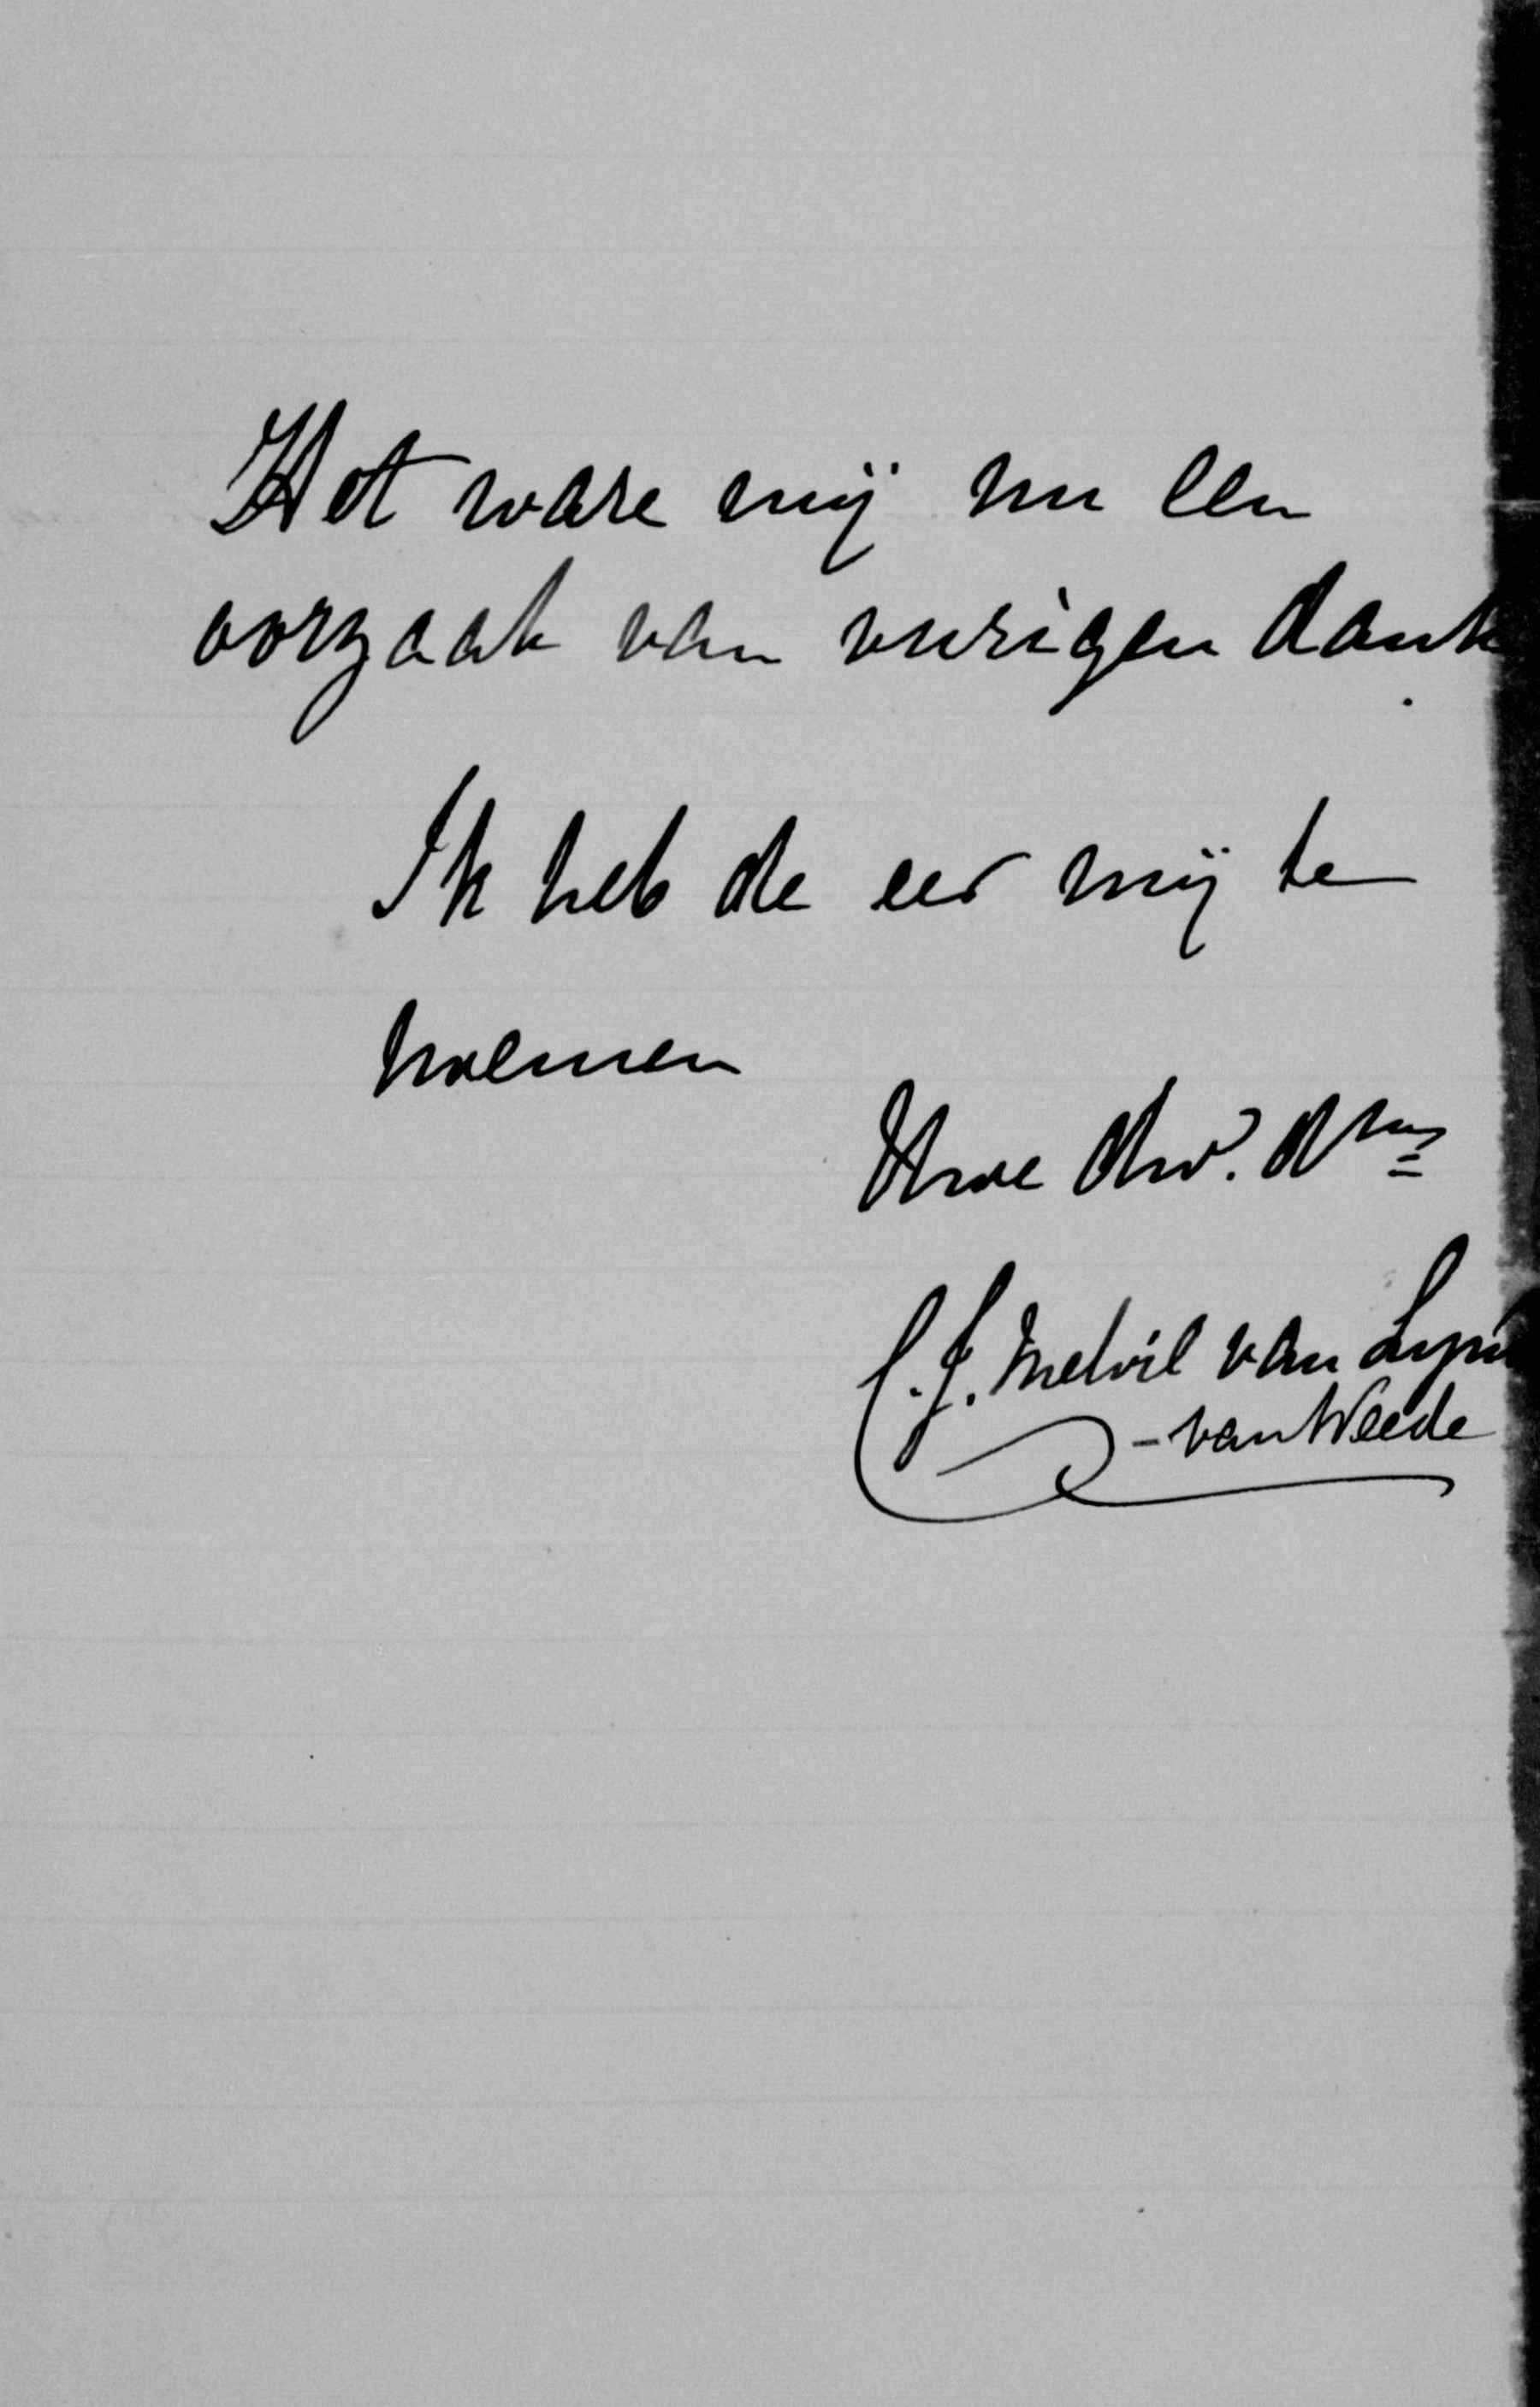 Het ware mij nu een
oorzaak van vurigen dank
Ik heb de eer mij te
noemen
Uwe dw. dns
C. J. Melvil van Lyn
- van Weede